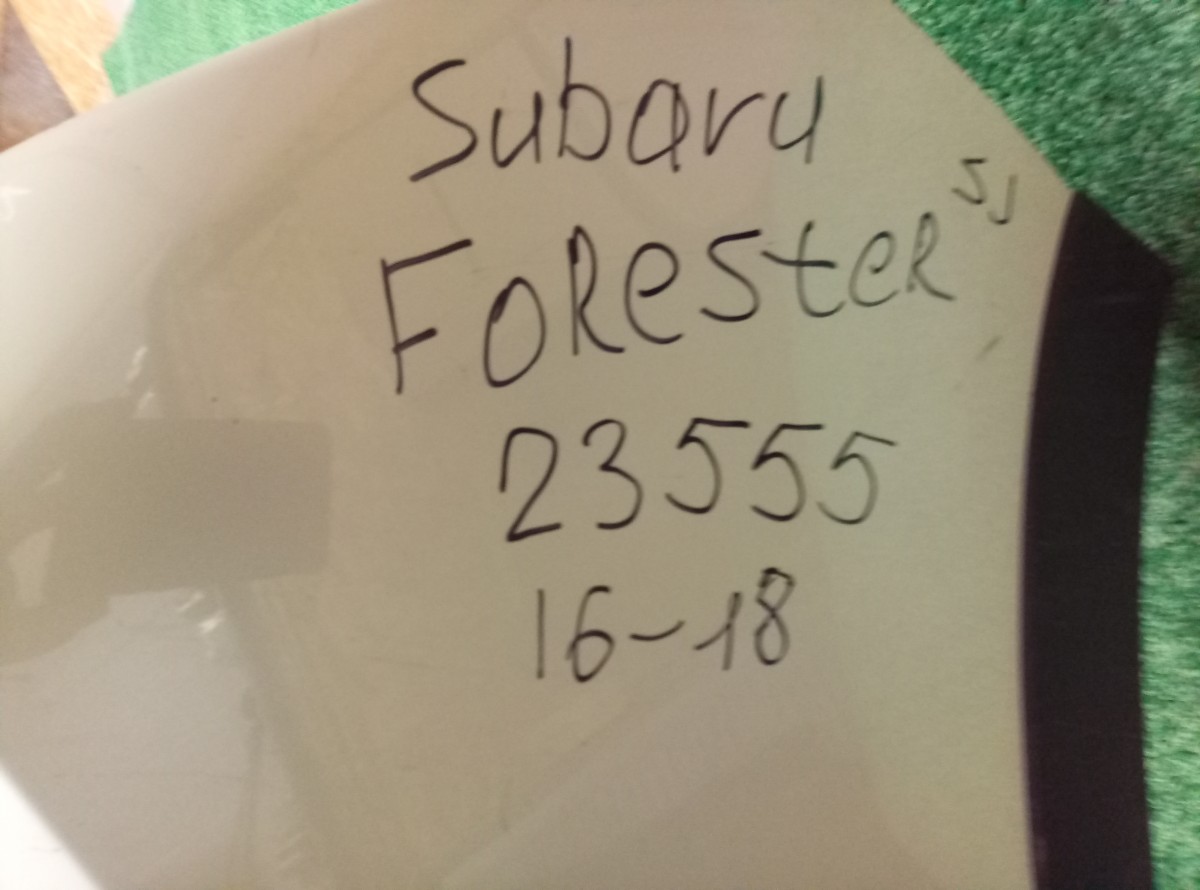 Subaru
Forester SJ
23555
16-18